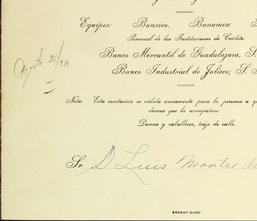 Equipos: Banrica. Banamex.
Personal de las Instituciones de Crédito.
Banco Mercantil de Guadalajara, S.
Banco Industrial de Jalisco, S.
Agosto 21/
Nota: Esta invitación es válida únicamente para la persona a
damas que la acompañen
Damas y caballeros, traje de calle.
Sr. D Luis Montes de
BRANDT-GUAD.